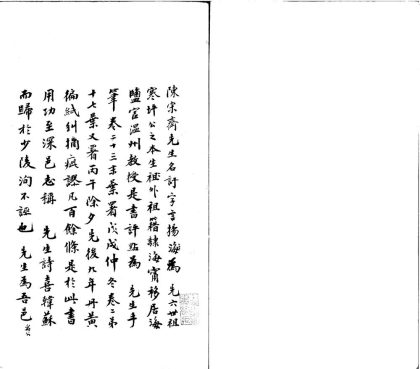 陳宗齋先生名訏字言揚海爲 先六世祖
寒坪公之本生祖外祖籍隸海甯移居海
鹽官温州教授是書評點爲 先生手
筆卷二十三末葉署戊戌仲冬卷二第
十七葉又署丙午除夕先後九年丹黃
徧紙糾摘疵謬凡百餘條是於此書
用功至深邑志稱 先生詩喜韓蘇
而歸於少陵洵不誣也 先生爲吾邑